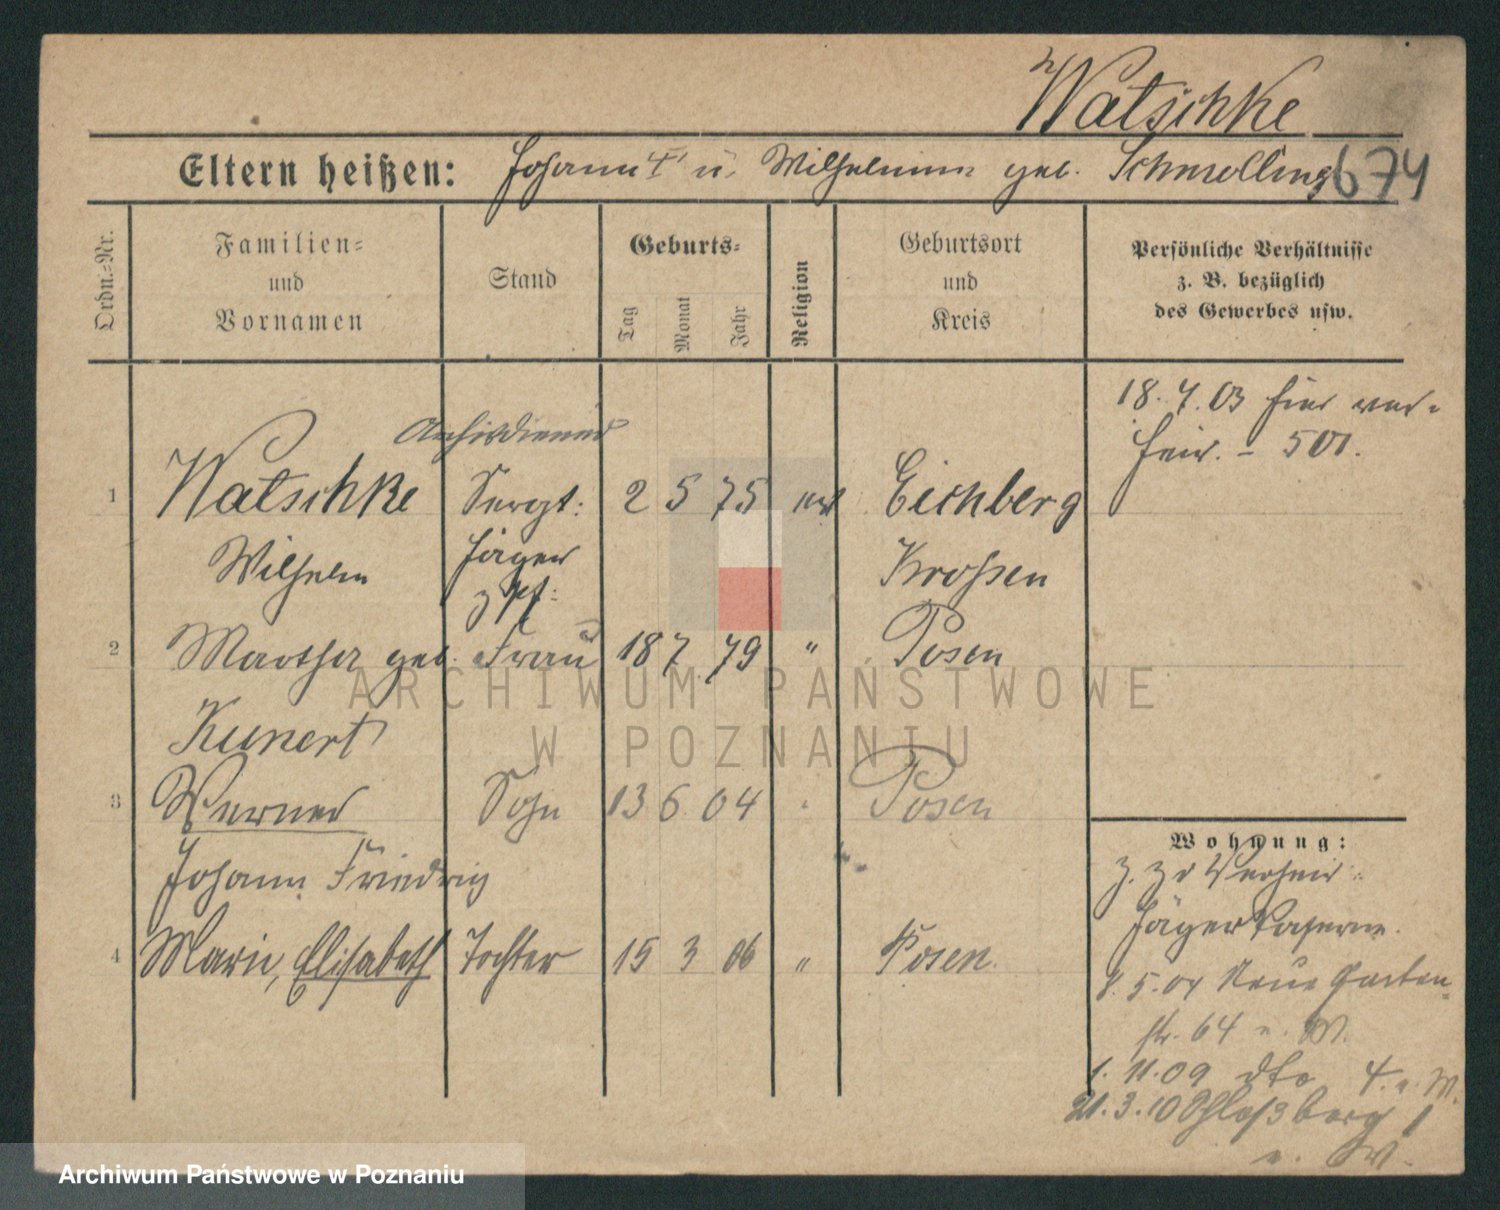 Watschke
Eltern heißen: Johann † u. Wilhelmine geb. Schmolling 674
Ordn.-Nr.
Familien-
und
Vornamen
Stand
Geburts-
Tag
Monat
Jahr
Religion
Geburtsort
und
Kreis
Persönliche Verhältnisse
z. B. bezüglich
des Gewerbes usw.
18. 7. 03 hier ver-
heir. - 501.
Archivdiener
1 Watschke Sergt: 2 5 75 ev Eichberg
Wilhelm Jäger Krossen
2 Martha geb. Frau 18 7 79 " Posen
Kunert
3 Werner Sohn 13 6 04 Posen
Johann Friedrich
4 Marie, Elisabeth Tochter 15 3 06 " Posen.
Wohnung:
Jägerkaserne.
Neue Garten-
str. 64 u. W.
1. 11. 09 dto 4. u. W.
21. 3. 10 Schloßberg 1
u. W.
ARCHIWUM PAŃSTWOWE
W POZNANIU
Archiwum Państwowe w Poznaniu